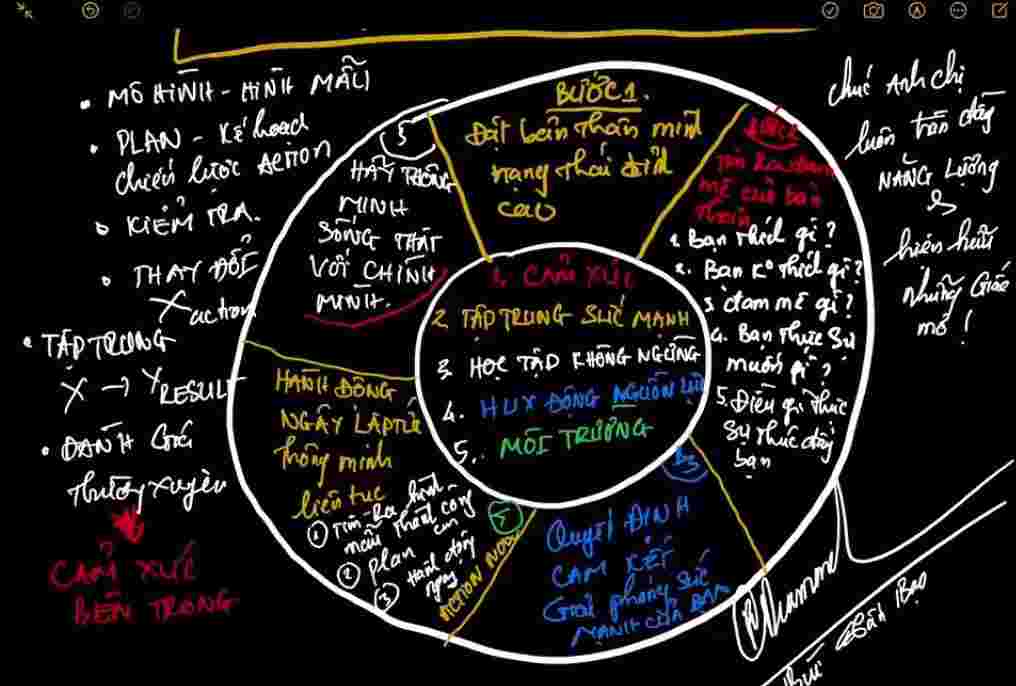 • MÔ HÌNH - HÌNH MẪU
• PLAN - Kế hoạch
chiến lược ACTION
• KIỂM TRA.
• THAY ĐỔI
X action
• TẬP TRUNG
X → Y RESULT
• ĐÁNH GIÁ
Thường xuyên
CẢM XÚC
BÊN TRONG
BƯỚC 1.
Đặt bản thân mình
trạng thái đỉnh
cao
BƯỚC 2
mê của bản
thân
1. Bạn thích gì?
2. Bạn Ko thích gì?
3. đam mê gì?
4. Bạn thực sự
muốn gì?
5. Điều gì thực
sự thúc đẩy
bạn
B3
Quyết ĐỊNH
CAM KẾT
Giải phóng SỨC
MẠNH CỦA BẠN
HÀNH ĐỘNG
NGAY LẬP TỨC
thông minh
liên tục
① Tìm ra hình
mẫu thành công
② Plan
③ Hành động
ngay
ACTION NOW
5
HÃY THÔNG
MINH
SỐNG THẬT
VỚI CHÍNH
MÌNH.
1. CẢM XÚC
2. TẬP TRUNG SỨC MẠNH
3. HỌC TẬP KHÔNG NGỪNG
4. HUY ĐỘNG NGUỒN LỰC
5. MÔI TRƯỜNG
chúc Anh chị
luôn tràn đầy
NĂNG LƯỢNG
&
hiện hữu
những Giấc
mơ!